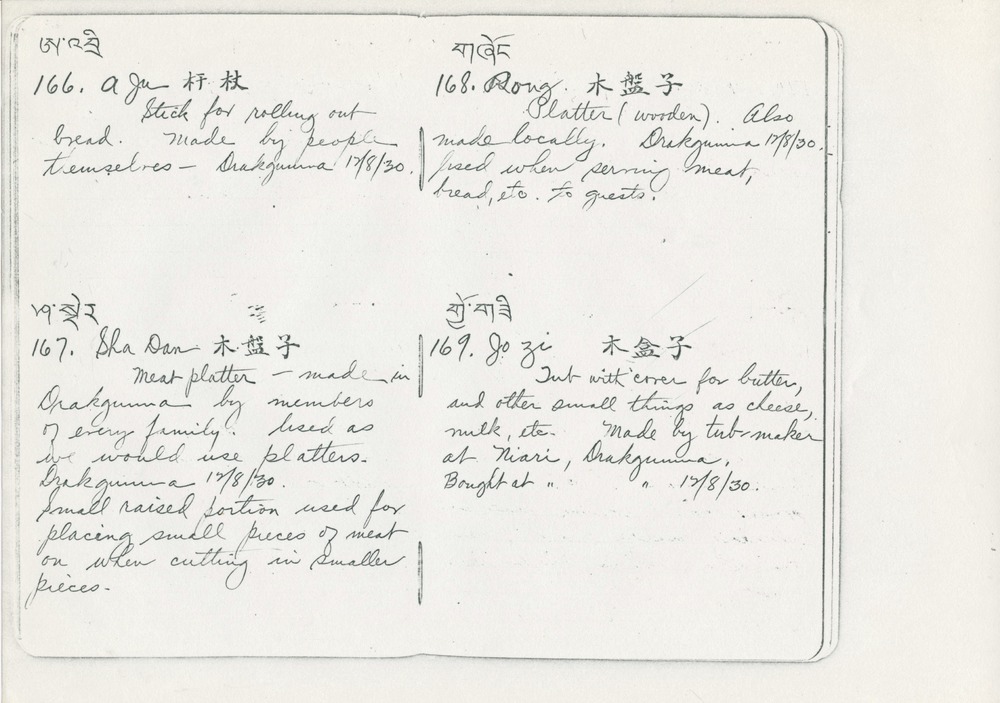 166. a Ju 杆杖
Stick for rolling out
bread. Made by people
themselves — Drakgumna 12/8/30.
167. Sha Dan 木盤子
Meat platter — made in
Drakgumna by members
of every family. Used as
we would use platters.
Drakgumna 12/8/30.
Small raised portion used for
placing small pieces of meat
on when cutting in smaller
pieces.
168. Rong. 木盤子
Platter (wooden). Also
made locally. Drakgumna 12/8/30.
Used when serving meat,
bread, etc. to guests.
169. Jo zi 木盒子
Tub with cover for butter,
and other small things as cheese,
milk, etc. Made by tub-maker
at Niari, Drakgumna,
Bought at " " 12/8/30.